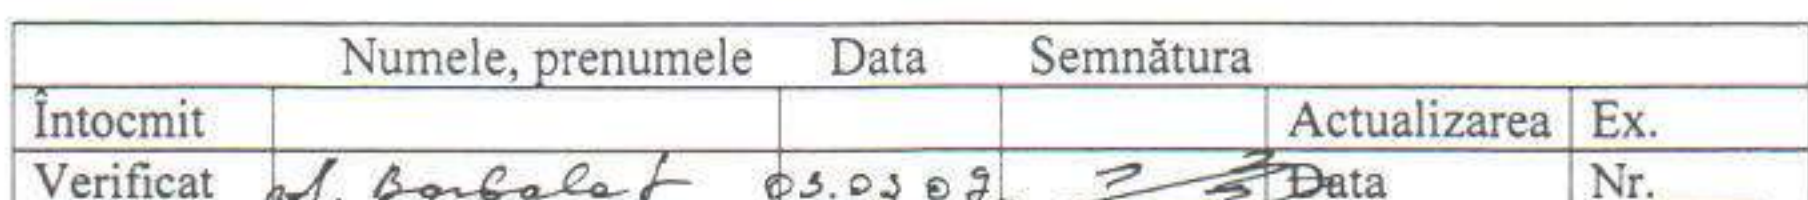 Numele, prenumele Data Semnătura
Întocmit Actualizarea Ex.
Verificat A. Barbalat 03.03 09 Data Nr.